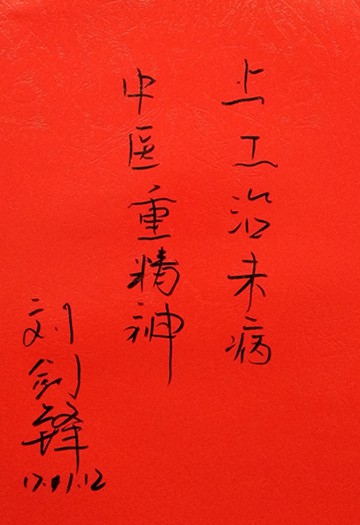 上工治未病
中医重精神
刘剑锋
17.11.12